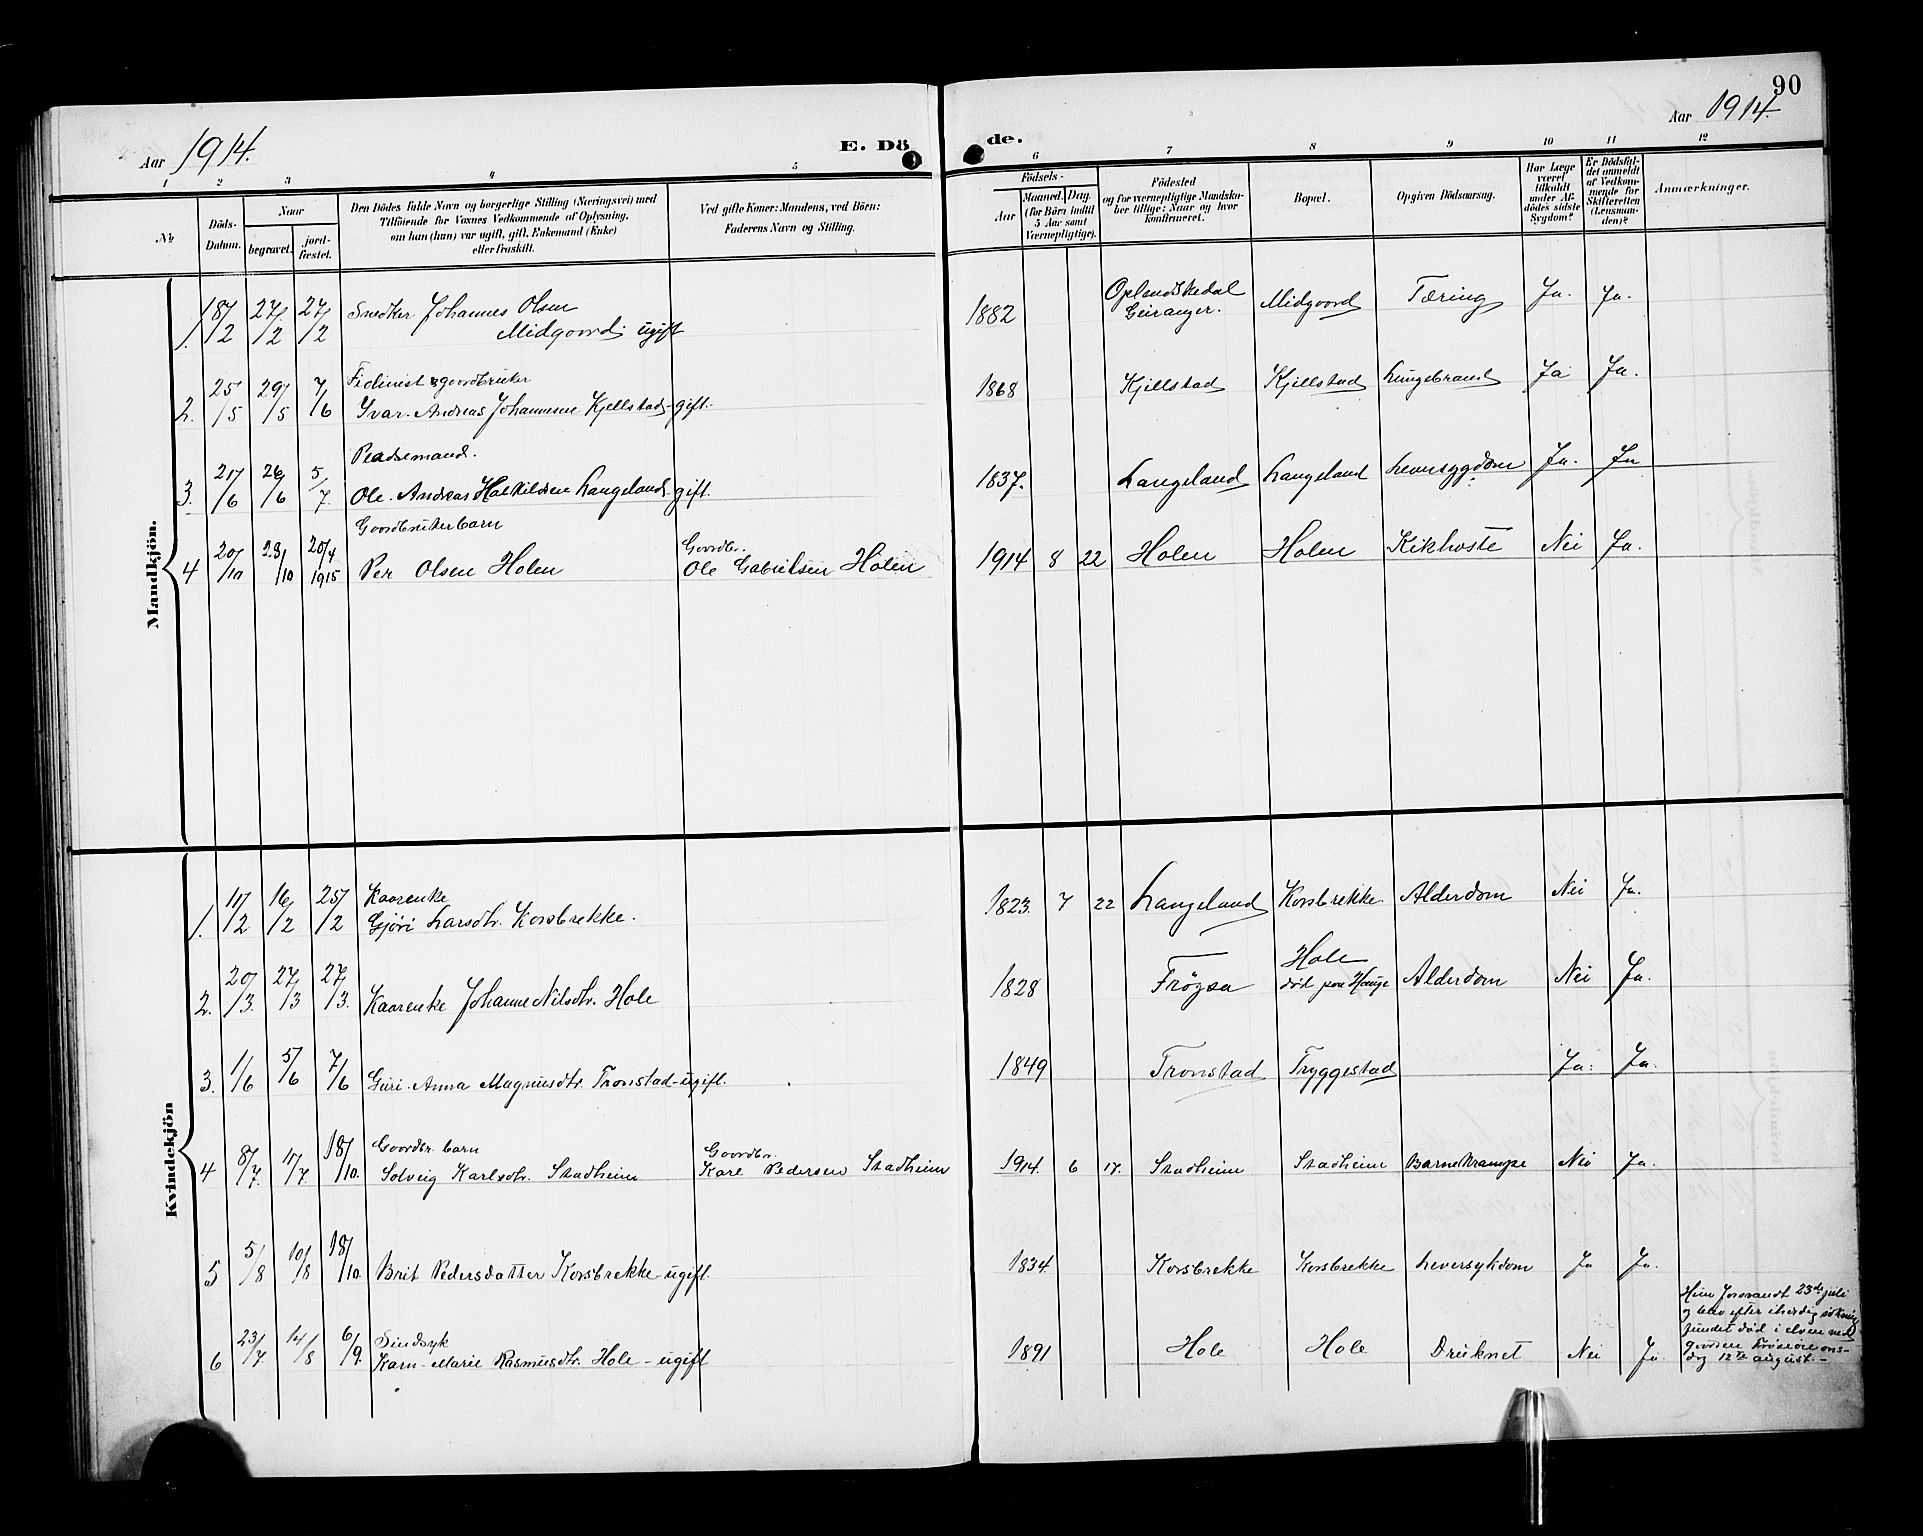 90
Aar 1914.
E. Dö
de.
Aar 1914.
1 2 3 4 5
6 7 8 9 10 11 12
No
Döds-
Datum.
Naar
begravet.
jord-
fæstet.
Den Dödes fulde Navn og borgerlige Stilling (Næringsvei) med
Tilföiende for Voxnes Vedkommende af Oplysning,
om han (hun) var ugift, gift, Enkemand (Enke)
eller fraskilt.
Ved gifte Koner: Mandens, ved Börn:
Faderens Navn og Stilling.
Födsels-
Aar
Maaned. Dag.
(for Börn indtil
5 Aar samt
Værnepligtige).
Födested
og for værnepligtige Mandskaber
tillige: Naar og hvor
konfirmeret.
Bopæl.
Opgiven Dödsaarsag.
Har Læge
været
tilkaldt
under Afdödes
sidste
Sygdom?
Er Dödsfaldet
anmeldt
af Vedkommende
for
Skifteretten
(Lensmanden)?
Anmærkninger.
Mandkjön.
Snedker Johannes Olsen
1. 18/2 27/2 27/2 Midgaard. ugift 1882 Oplandskedal Geiranger. Midgaard Tæring Ja. Ja.
gaardbruker
2. 25/5 29/5 7/6 Ivar-Andreas Johannesen Kjellstad-gift. 1868 Kjellstad Kjellstad Lungebrand Ja Ja.
3. 21/6 26/6 5/7. Ole-Andreas Langeland-gift. 1837. Langeland Langeland Leversygdom Ja. Ja
Gaardbrukerbarn
Gaardbr.
4 20/10 23/10 20/4 1915 Per Olsen Holen Ole Gabrielsen Holen 1914 8 22 Holen Holen Kikhoste Nei Ja.
Kvindekjön
Kaarenke
1. 11/2 16/2 25/2 Gjöri Larsdtr. Korsbrekke. 1823. 7 22 Langeland Korsbrekke. Alderdom Nei Ja.
2. 20/3. 27/3 27/3. Kaarenke Johanne Nilsdtr. Hole 1828 Frøysa Hole död paa Hauge Alderdom Nei Ja.
3. 1/6 5/6 7/6 Guri-Anna Magnusdtr. Tronstad-ugift. 1849 Tronstad Tryggestad Ja. Ja.
Gaardbr. barn
Gaardbr.
4 8/7. 11/7. 18/10. Solveig Karlsdtr. Stadheim Karl Pedersen Stadheim 1914. 6 17. Stadheim Stadheim Barnekrampe Nei Ja.
5 5/8 10/8 18/10. Brit Pedersdatter Korsbrekke-ugift. 1834. Korsbrekke Korsbrekke Leversykdom Ja Ja.
Sindsyk
6 23/7. 14/8 6/9. Karn-Marie Rasmusdtr. Hole-ugift 1891 Hole Hole Druknet Nei Ja
Hun forsvandt 23de juli
og blev efter iherdig sökning
fundet död i elven ved
gaarden ons-
dag 12te august.-